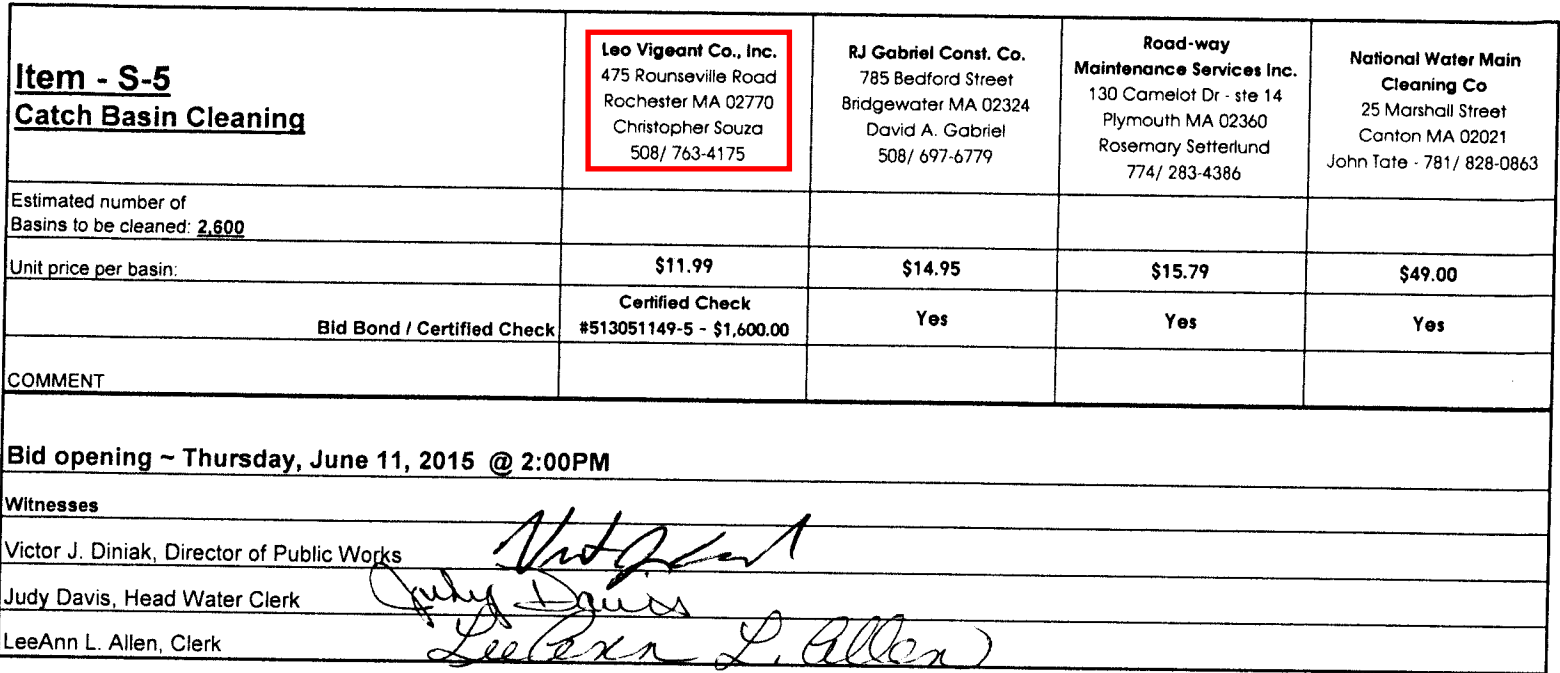 Item - S-5
Catch Basin Cleaning
Leo Vigeant Co., Inc.
475 Rounseville Road
Rochester MA 02770
Christopher Souza
508/ 763-4175
RJ Gabriel Const. Co.
785 Bedford Street
Bridgewater MA 02324
David A. Gabriel
508/ 697-6779
Road-way
Maintenance Services Inc.
130 Camelot Dr - ste 14
Plymouth MA 02360
Rosemary Setterlund
774/ 283-4386
National Water Main
Cleaning Co
25 Marshall Street
Canton MA 02021
John Tate - 781/ 828-0863
Estimated number of
Basins to be cleaned: 2,600
Unit price per basin: $11.99 $14.95 $15.79 $49.00
Bid Bond / Certified Check Certified Check
#513051149-5 - $1,600.00 Yes Yes Yes
COMMENT
Bid opening ~ Thursday, June 11, 2015 @ 2:00PM
Witnesses
Victor J. Diniak, Director of Public Works
Judy Davis, Head Water Clerk Judy Davis
LeeAnn L. Allen, Clerk LeeAnn L. Allen